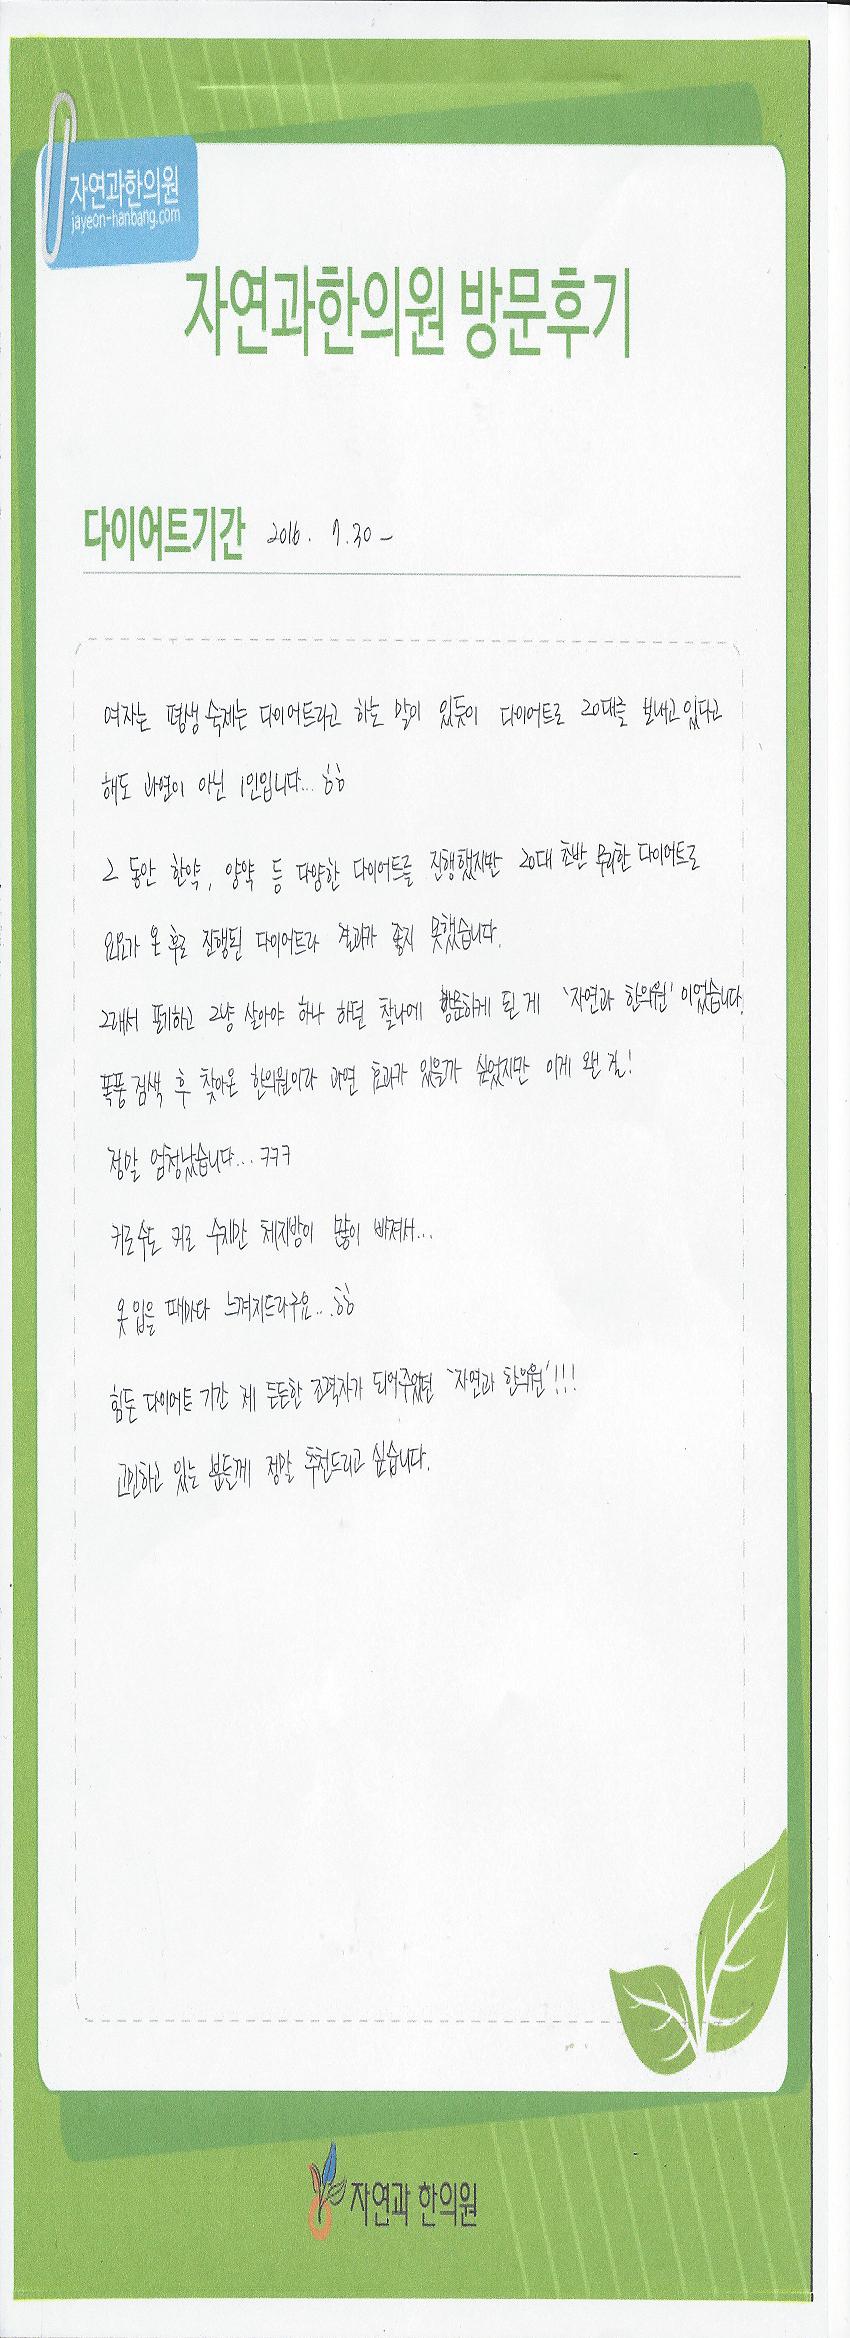 자연과한의원
jayeon-hanbang.com
자연과한의원 방문후기
다이어트기간 2016. 7.30 ~
여자는 평생 숙제는 다이어트라고 하는 말이 있듯이 다이어트로 20대를 보내고 있다고
해도 과언이 아닌 1인입니다... ㅎㅎ
그 동안 한약, 양약 등 다양한 다이어트를 진행했지만 20대 초반 무리한 다이어트로
요요가 온 후로 진행된 다이어트라 결과가 좋지 못했습니다.
그래서 포기하고 그냥 살아야 하나 하던 찰나에 방문하게 된 게 '자연과 한의원' 이었습니다.
폭풍 검색 후 찾아온 한의원이라 과연 효과가 있을까 싶었지만 이게 왠 걸!
정말 엄청났습니다... ㅋㅋㅋ
키로수도 키로 수지만 체지방이 많이 빠져서...
옷 입을 때마다 느껴지드라구요... ㅎㅎ
힘든 다이어트 기간 제 든든한 조력자가 되어주었던 '자연과 한의원'!!!
고민하고 있는 분들께 정말 추천드리고 싶습니다.
자연과 한의원